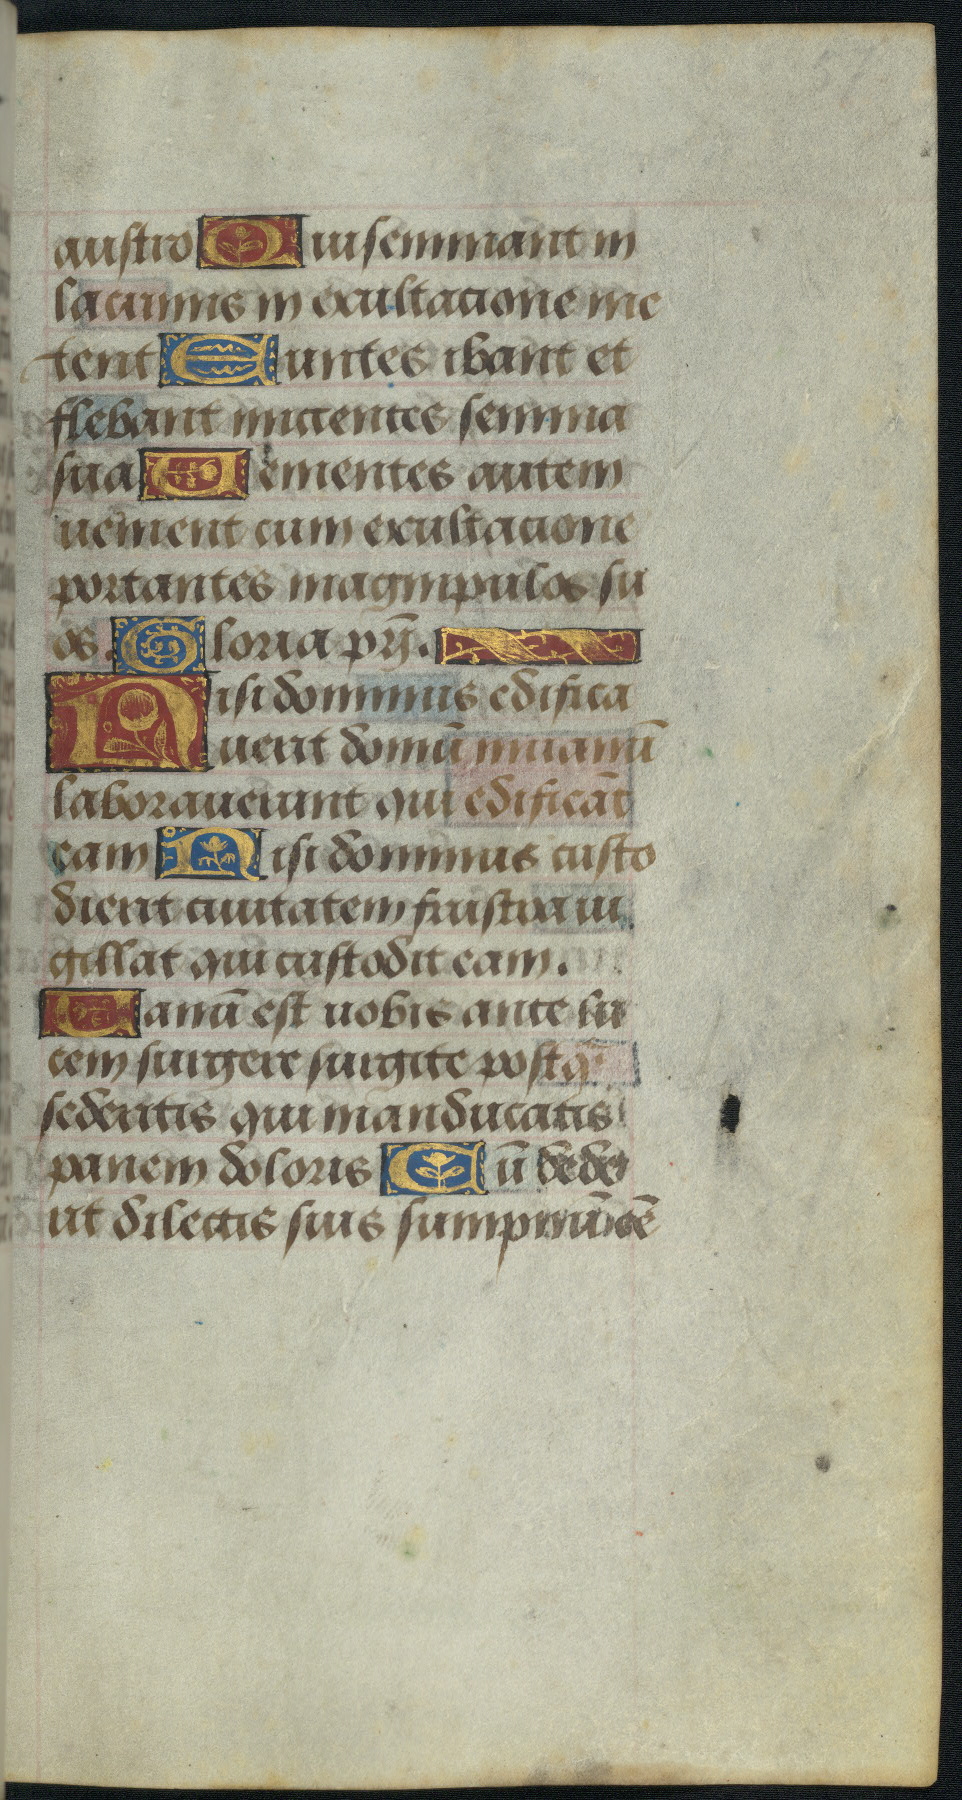 austro Qui seminant in
lacrimis in exultacione me
tent Euntes ibant et
flebant mictentes semina
sua Uementes autem
uement cum exultacione
portantes magnipulos su
os. Gloria prj̃.
Nisi dominus edifica
uerit domũ inuanũ
laborauerunt qui edificãt
eam Nisi dominus custo
dierit ciuitatem frustra ui
gillat qui custodit eam.
Uanũ est uobis ante lu
cem surgere surgite postq̃
sederitis qui manducatis
panem doloris Cũ dede
rit dilectis suis sumpnũ ecẽ
57